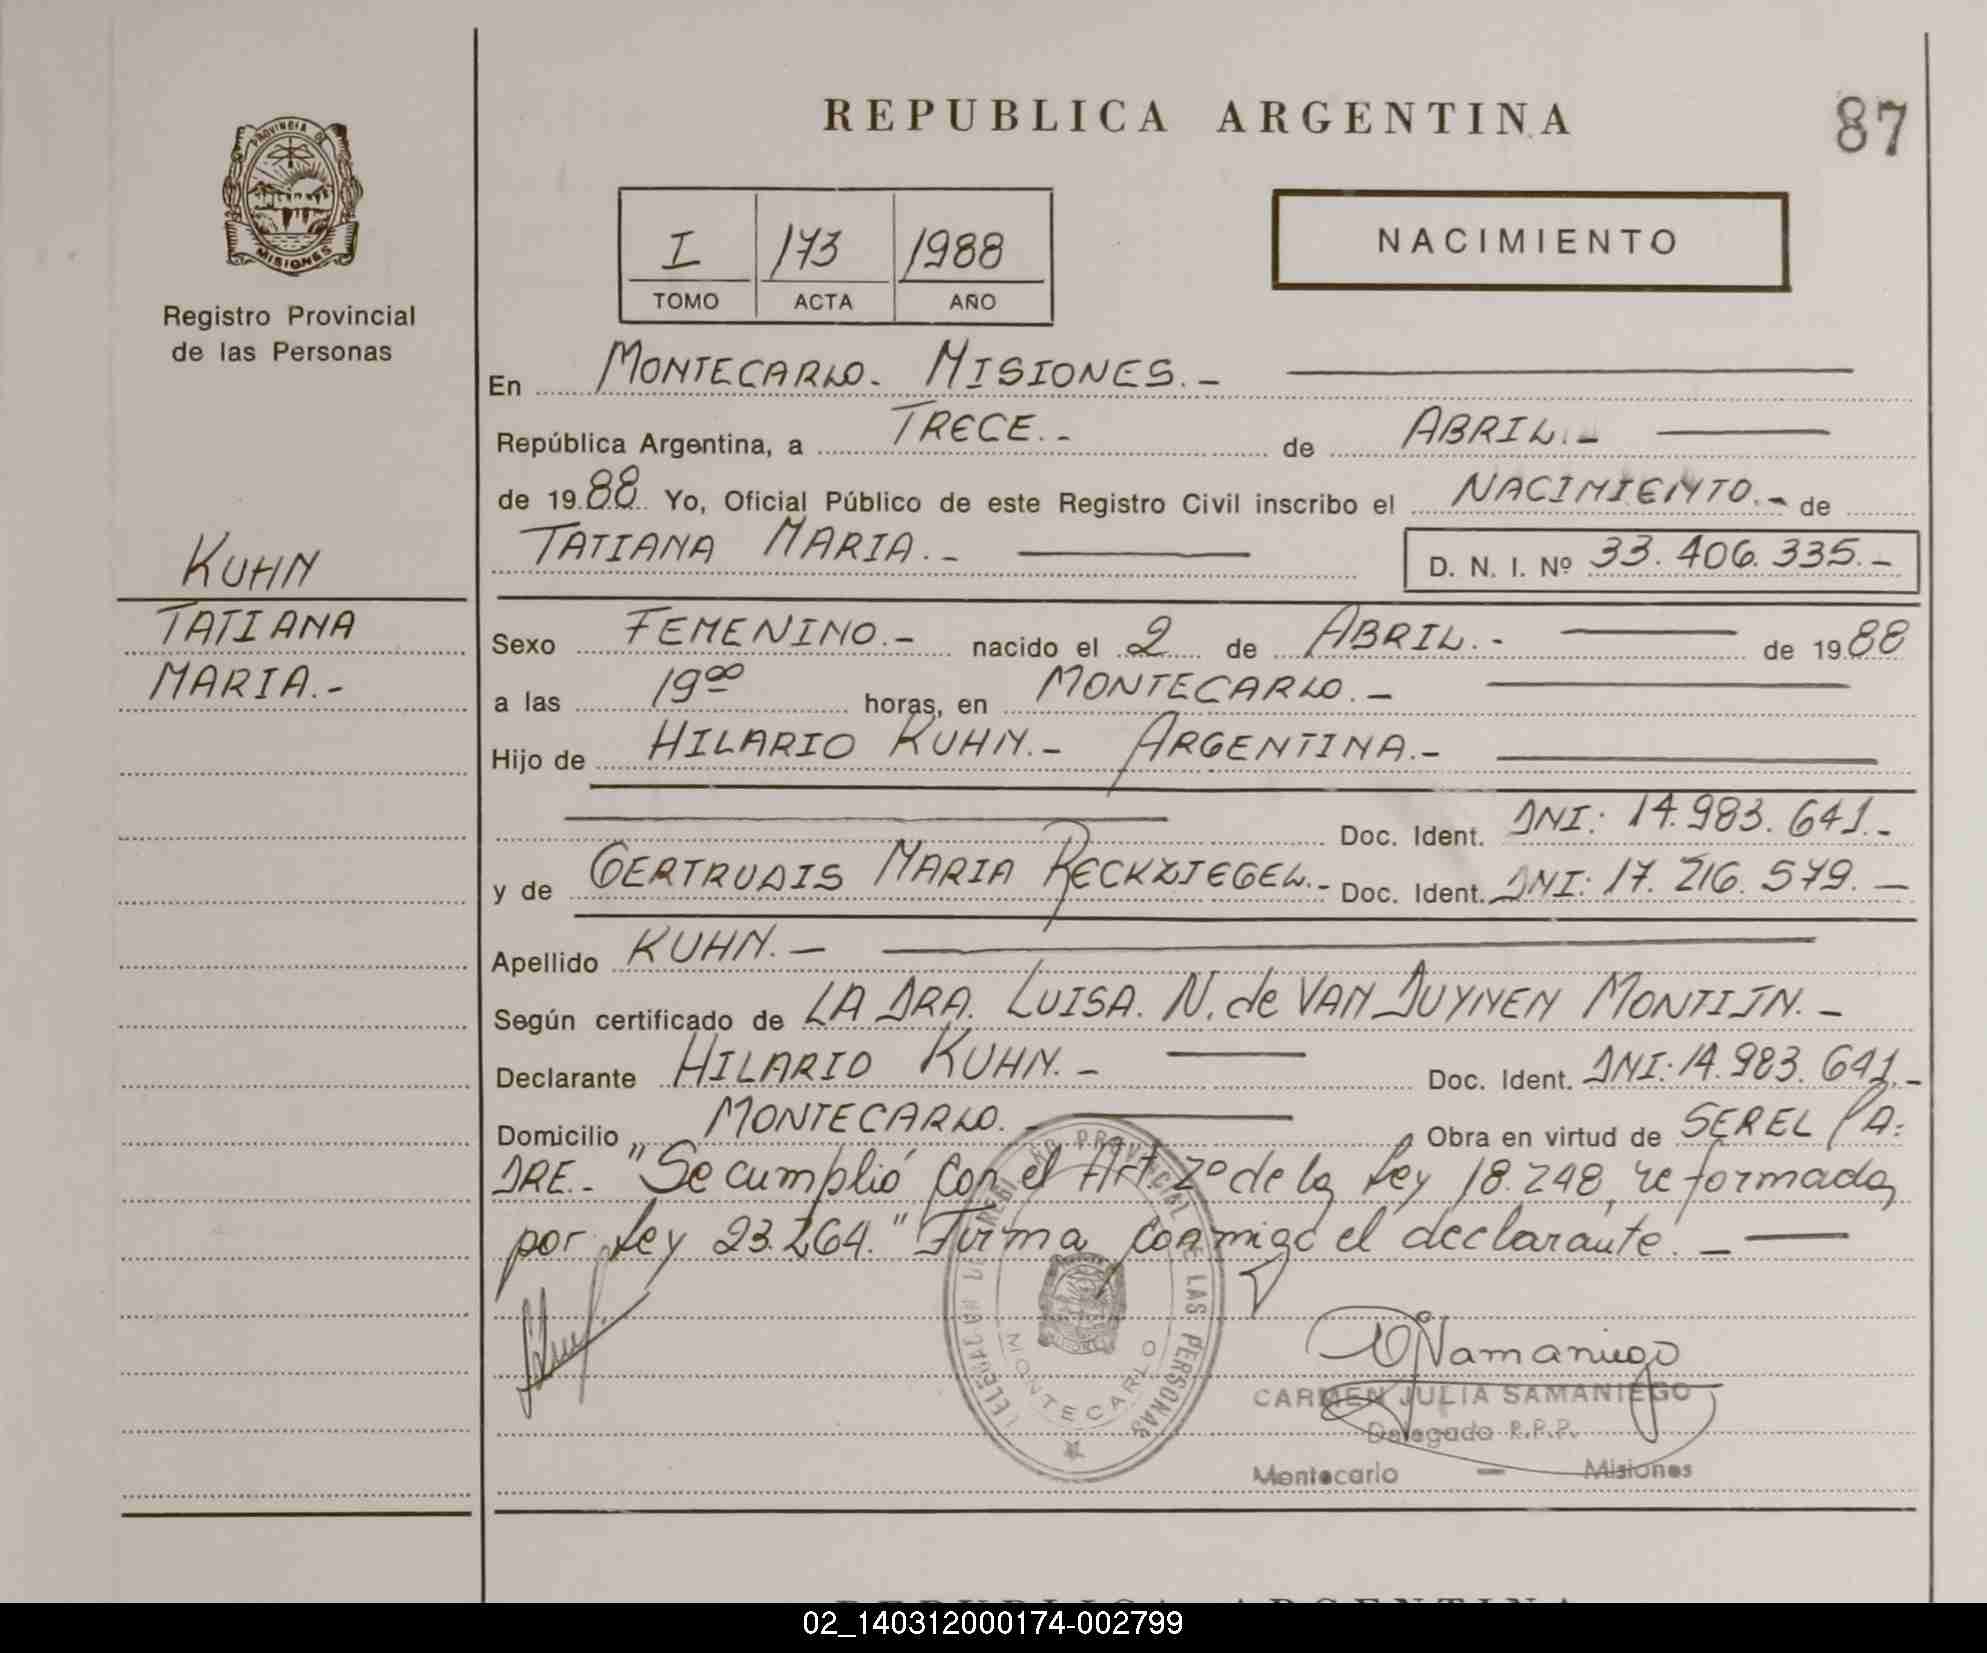 REPUBLICA ARGENTINA
87
PROVINCIA DE
MISIONES
Registro Provincial
de las Personas
I 173 1988
TOMO ACTA AÑO
NACIMIENTO
En MONTECARLO. MISIONES.-
República Argentina, a TRECE.- de ABRIL.-
de 1988 Yo, Oficial Público de este Registro Civil inscribo el NACIMIENTO.- de
TATIANA MARIA.- D. N. I. Nº 33.406.335.-
KUHN
TATIANA
MARIA.-
Sexo FEMENINO.- nacido el 2 de ABRIL.- de 1988
a las 19⁰⁰ horas, en MONTECARLO.-
Hijo de HILARIO KUHN.- ARGENTINA.-
Doc. Ident. DNI: 14.983.641.-
y de GERTRUDIS MARIA RECKZIEGEL.- Doc. Ident. DNI: 17.216.579.-
Apellido KUHN.-
Según certificado de LA DRA. LUISA. N. de VAN DUYNEN MONTIJN.-
Declarante HILARIO KUHN.- Doc. Ident. DNI: 14.983.641.-
Domicilio MONTECARLO.- Obra en virtud de SER EL PA-
DRE.- "Se cumplió con el Art 2º de la Ley 18.248, reformada
por Ley 23.264." Firma conmigo el declarante.-
DELEGACION DE REGISTRO PROVINCIAL DE LAS PERSONAS
MONTECARLO
CARMEN JULIA SAMANIEGO
Delegado R.P.P.
Montecarlo - Misiones
02_140312000174-002799